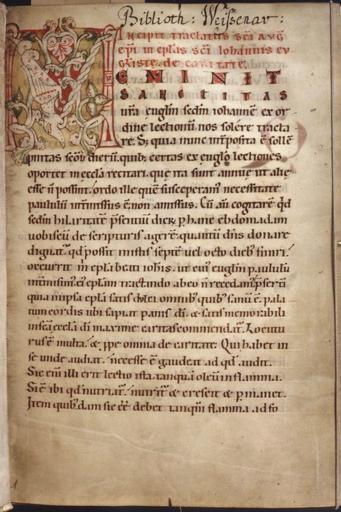 Biblioth: Weissenav:
Incipit tractatus sc̄i aug
ep̄i in ep̄las sc̄i Iohannis ev
gl̄iste. de caritate.
EMINIT
SANCTITAS
ur̄a euglīm sēdm iohannē ex or
dine lectionū nos solere tracta
re. Sꝫ quia nunc int̄posita ē sollē
nnitas sc̄oꝝ dierū. quibꝫ certas ex eugl̄o lectiones
oportet in eccl̄a recitari. que ita sunt annuę ut alię
esse n̄ possint. ordo ille quē susceperam̄ necessitate
paululū int̄missus ē. non amissus. Cū aū cogitarē qd
sēdm hilaritatē p̄sentiū dierū p̄ hanc ebdomadam
uobiscū de scripturis agerē. quantū dn̄s donare
dignat̄. qd possit in istis septē uel octo diebꝫ finiri.
occurrit m̄ ep̄la beati ioh̄is. ut cui̅ euglīm paululū
int̄misim̄. ei̅ ep̄lam tractando ab eo n̄ recedam̄. p̄sertī
quia in ipsa ep̄la satis dulci omnibꝫ quibꝫ sanū ē pala
tum cordis ubi sapiat panis dī. & satis memorabili
in sc̄a eccl̄a dī maxime caritas commendat̄. Locutu
rus ē multa. & ꝓpe omnia de caritate. Qui habet in
se unde audiat. necesse ē gaudeat ad qd audit.
Sic enī illi erit lectio ista. tanquā oleū in flamma.
Si ē ibi qd nutriat̄. nutrit̄ & crescit & p̄manet.
Item quibꝫdam sic ee debet tanquā flamma ad fo